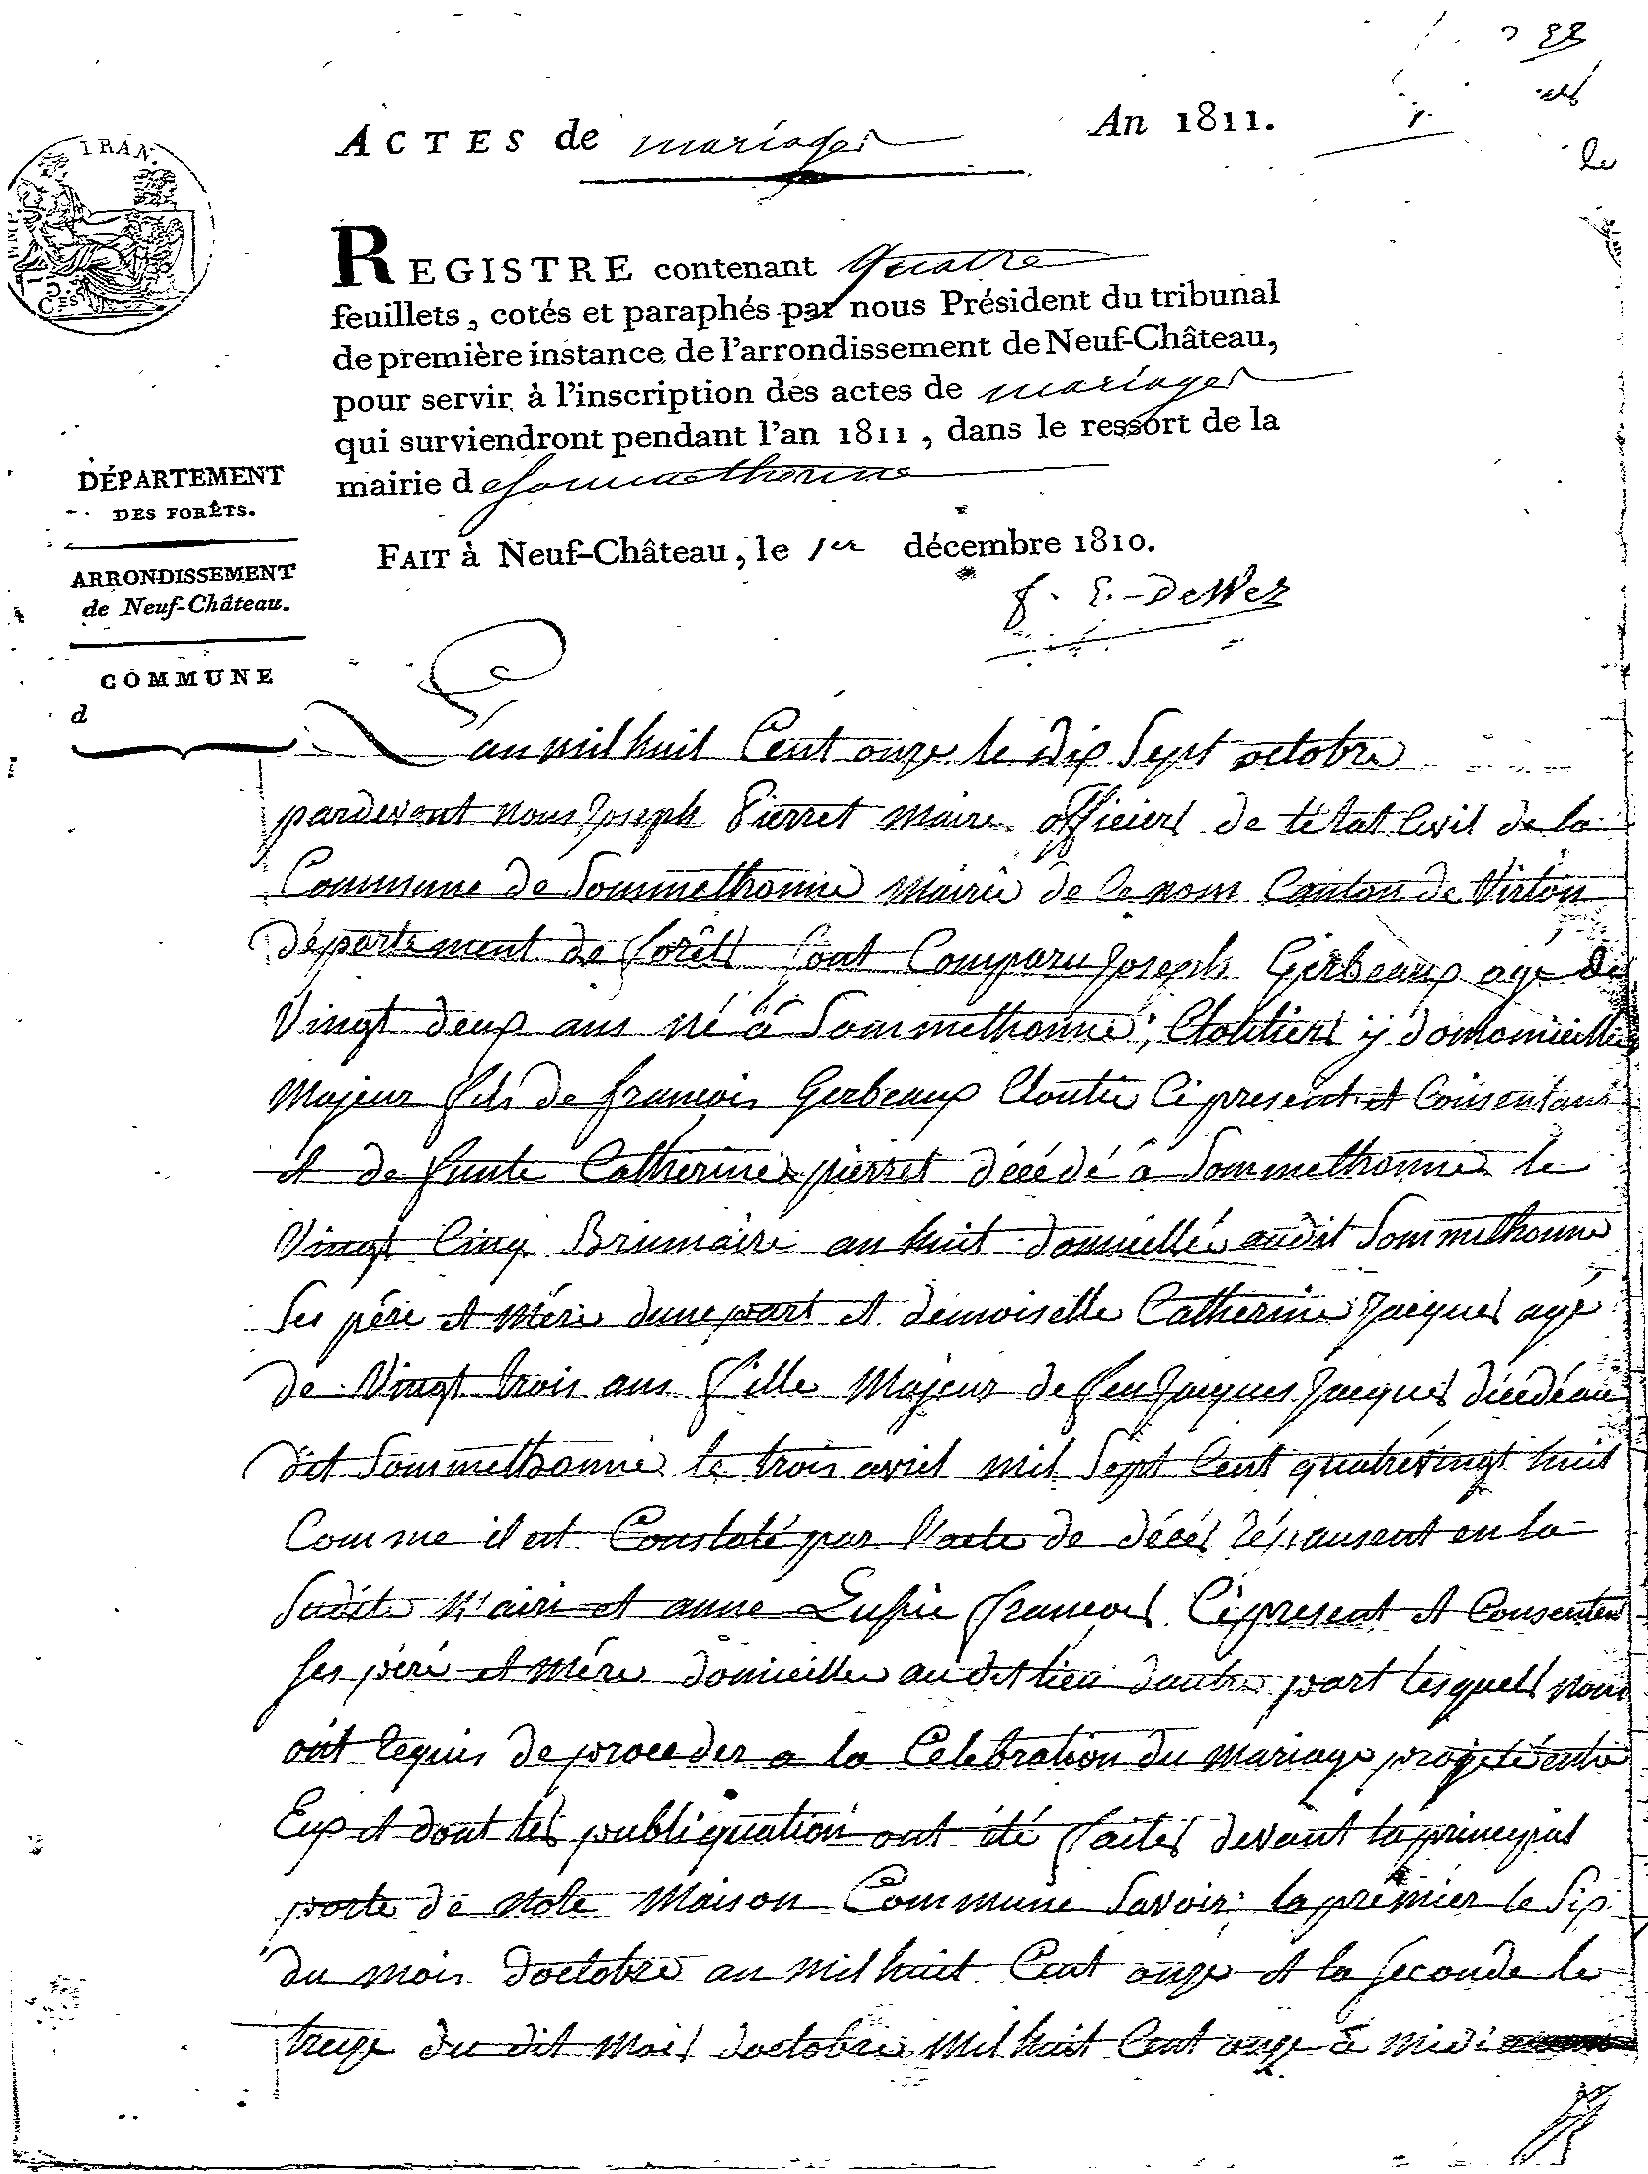 ACTES de mariages
An 1811.
REGISTRE contenant quatre
feuillets, cotés et paraphés par nous Président du tribunal
de première instance de l'arrondissement de Neuf-Château,
pour servir à l'inscription des actes de mariages
qui surviendront pendant l'an 1811, dans le ressort de la
mairie de Sommethonne
FAIT à Neuf-Château, le 1er décembre 1810.
DÉPARTEMENT
DES FORÊTS.
ARRONDISSEMENT
de Neuf-Château.
COMMUNE
d
L'an mil huit Cent onze le dix Sept octobre
pardevant nous Joseph Pierret Maire officiers de létat Civil de la
Commune de Sommethonne Mairie de Ce nom Canton de Virton
département de forêts Sont Comparu Joseph Gerbeaux agé de
Vingt deux ans né à Sommethonne, Cloutiers ÿ domomicillié
Majeur fils de francois Gerbeaux Cloutie Ci present et Consentant
et de funte Catherine pierret décédé à Sommethonne le
Vingt Cinq Brumaire an huit domicillié audit Sommethonne
Ses pére et Mére dune part et demoiselle Catherine Jacques agé
de Vingt trois ans fille Majeur de feu Jacques Jacques décédé au
dit Sommethonne le trois avril mil Sept Cent quatrevingt huit
Comme il est Constaté par l'acte de décés réposent en la
Sudite Mairi et anne Lusie francois Ci present et Consenten
Ses péré et Mére domicillie au dit lieu dautre part lesquels nous
ont requis de proceder a la Celebration du mariage projeté entre
Eux et dont les publiquation ont été faites devant la principal
porte de notre Maison Commune Savoir; la prémier le Six
du mois doctobre an mil huit Cent onze et la Seconde le
treize du dit Mois doctobre Mil huit Cent onze à midi